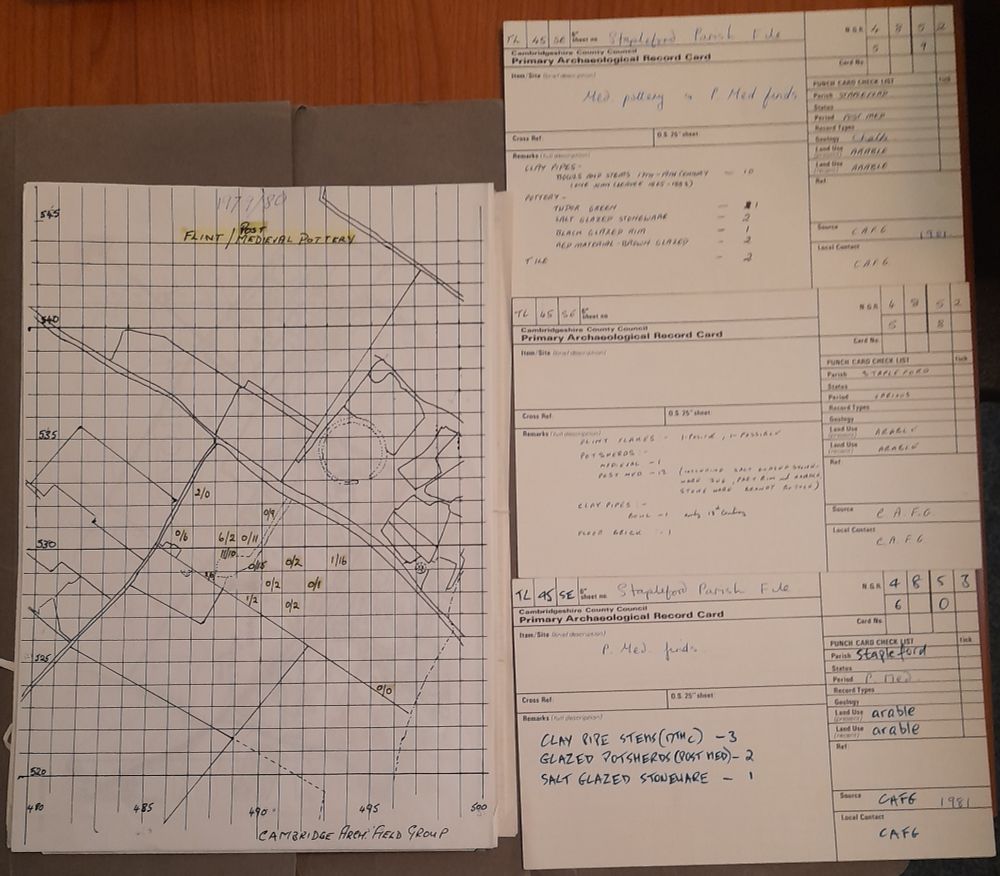 1979/80
FLINT / POST MEDIEVAL POTTERY
545
540
535
530
525
520
2/0
0/9
0/6
6/2
0/11
11/10
0/15
0/2
1/16
0/2
0/1
1/2
0/2
0/0
480
485
490
495
500
CAMBRIDGE ARCH. FIELD GROUP
TL 45 SE 6" sheet no Stapleford Parish File
N.G.R. 4 8 5 2
5 9
Card No
Cambridgeshire County Council
Primary Archaeological Record Card
Item/Site (brief description)
Med. pottery & P. Med finds
Cross Ref.
O.S. 25" sheet
Remarks (full description)
CLAY PIPES:-
BOWLS AND STEMS 17TH-19TH CENTURY — 10
POTTERY -
TUDOR GREEN — 1
SALT GLAZED STONEWARE — 2
BLACK GLAZED RIM — 1
RED MATERIAL-BROWN GLAZED — 2
TILE — 2
PUNCH CARD CHECK LIST tick
Parish STAPLEFORD
Status
Period POST MED
Record Types
Geology Chalk
Land Use (present) ARABLE
Land Use (recent) ARABLE
Ref:
Source C.A.F.G 1981
Local Contact
C.A.F.G.
TL 45 SE 6" sheet no
N.G.R. 4 8 5 2
5 8
Card No
Cambridgeshire County Council
Primary Archaeological Record Card
Item/Site (brief description)
Cross Ref.
O.S. 25" sheet
Remarks (full description)
FLINT FLAKES -
POTSHERDS:-
MEDIEVAL - 1
POST MED - 13 (INCLUDING SALT GLAZED STONE-
WARE JUG, PART RIM and HANDLE
STONE WARE BRANDY BOTTLE)
CLAY PIPES:-
BOWL - 1 early 18th Century
FLOOR BRICK - 1
PUNCH CARD CHECK LIST tick
Parish STAPLEFORD
Status
Period VARIOUS
Record Types
Geology
Land Use (present) ARABLE
Land Use (recent) ARABLE
Ref:
Source C.A.F.G
Local Contact
C.A.F.G.
TL 45 SE 6" sheet no Stapleford Parish File
N.G.R. 4 8 5 3
6 0
Card No
Cambridgeshire County Council
Primary Archaeological Record Card
Item/Site (brief description)
P. Med. finds
Cross Ref.
O.S. 25" sheet
Remarks (full description)
CLAY PIPE STEMS (17TH C) - 3
GLAZED POTSHERDS (POST MED) - 2
SALT GLAZED STONEWARE - 1
PUNCH CARD CHECK LIST tick
Parish Stapleford
Status
Period P. Med.
Record Types
Geology
Land Use (present) arable
Land Use (recent) arable
Ref:
Source CAFG 1981
Local Contact
CAFG